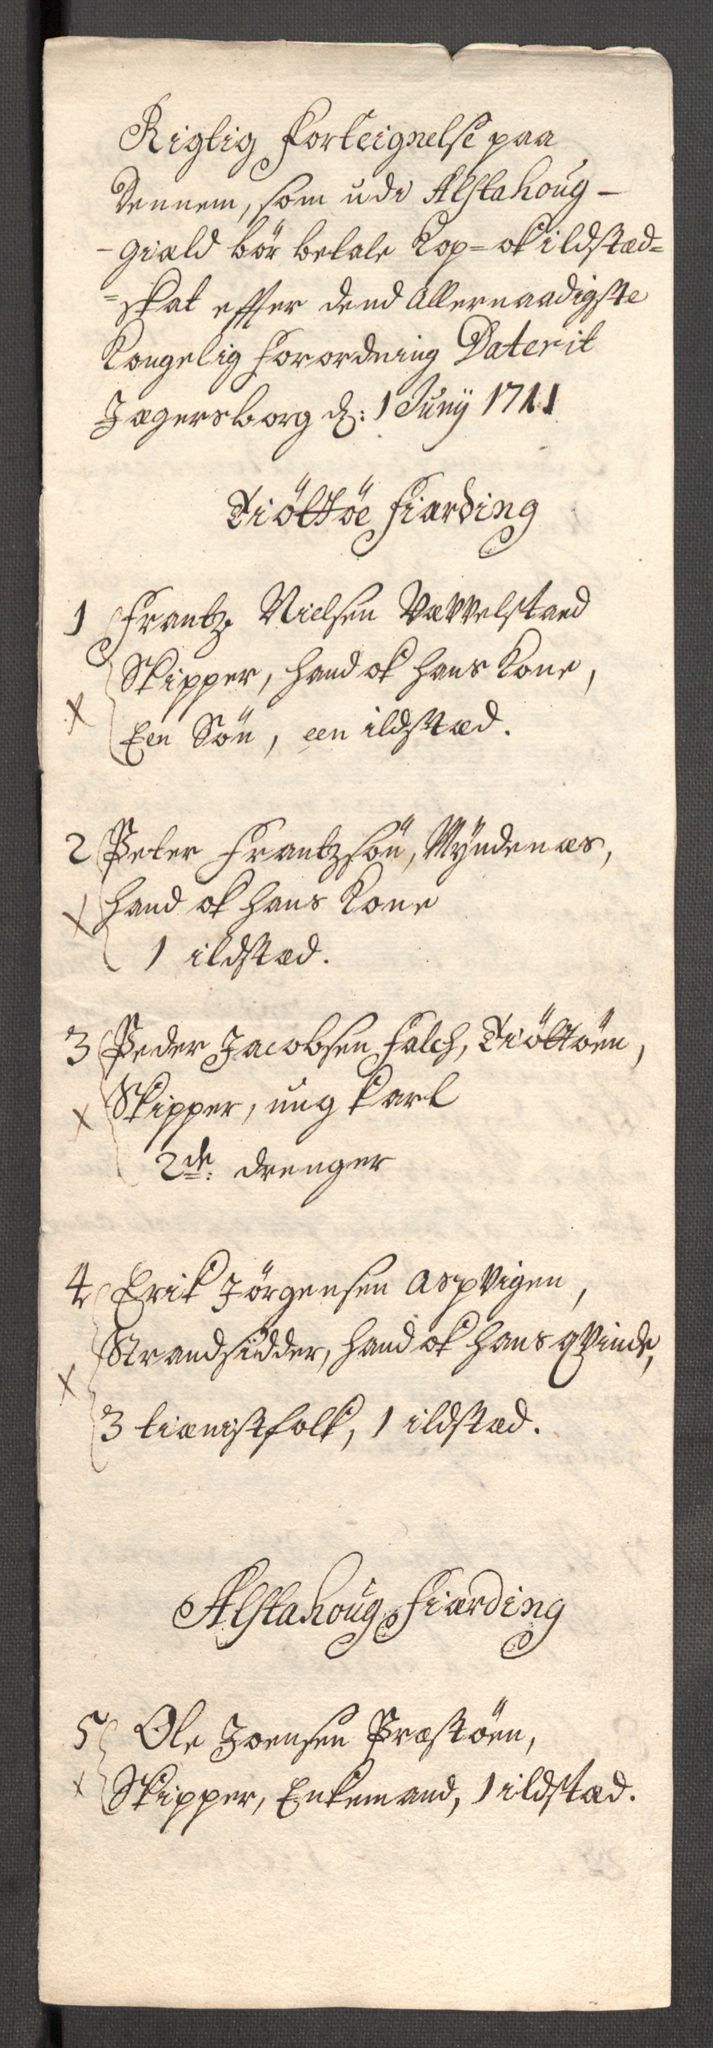 Rigtig Forteignelse paa
dennem, som udi Alstahoug-
-giæld bör betale Kop= ok ildstæd=
=skat effter dend Allernaadigste
Kongelig Forordning Daterit
Jægersborg d: 1 Junij 1711
Tiöttöe Fiærding
1 Frantz Nielsen Vævvelstad
Skipper, hand ok hans Kone,
x Een Sön, een ildstæd.
2 Peter Frantzsön, Myndenæs,
x hand ok hans Kone
1 ildstæd.
3 Peder Jacobsen Falch, Tiöttöen,
x Skipper, ung Karl
2de: drenger
4 Erik Jörgensen Aspvigen,
Strandsidder, hand ok hans qvinde,
x 3 tiænistfolk, 1 ildstæd.
Alstahoug Fiærding
5 Ole Joensen Præstöen,
x Skipper, Enkemand, 1 ildstæd.